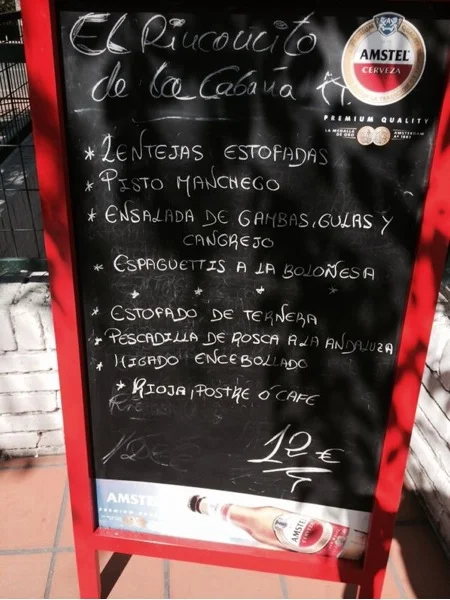 El Rinconcito
de la Cabaña
AMSTEL
CERVEZA
PREMIUM QUALITY
LA MEDALLA DE ORO
AMSTERDAM AÑO 1883
* LENTEJAS ESTOFADAS
* PISTO MANCHEGO
* ENSALADA DE GAMBAS, GULAS Y
CANGREJO
* ESPAGUETTIS A LA BOLOÑESA
* * * *
* ESTOFADO DE TERNERA
* PESCADILLA DE ROSCA A LA ANDALUZA
* HIGADO ENCEBOLLADO
* RIOJA, POSTRE Ó CAFE
12 €
AMSTEL
PREMIUM
AMSTEL